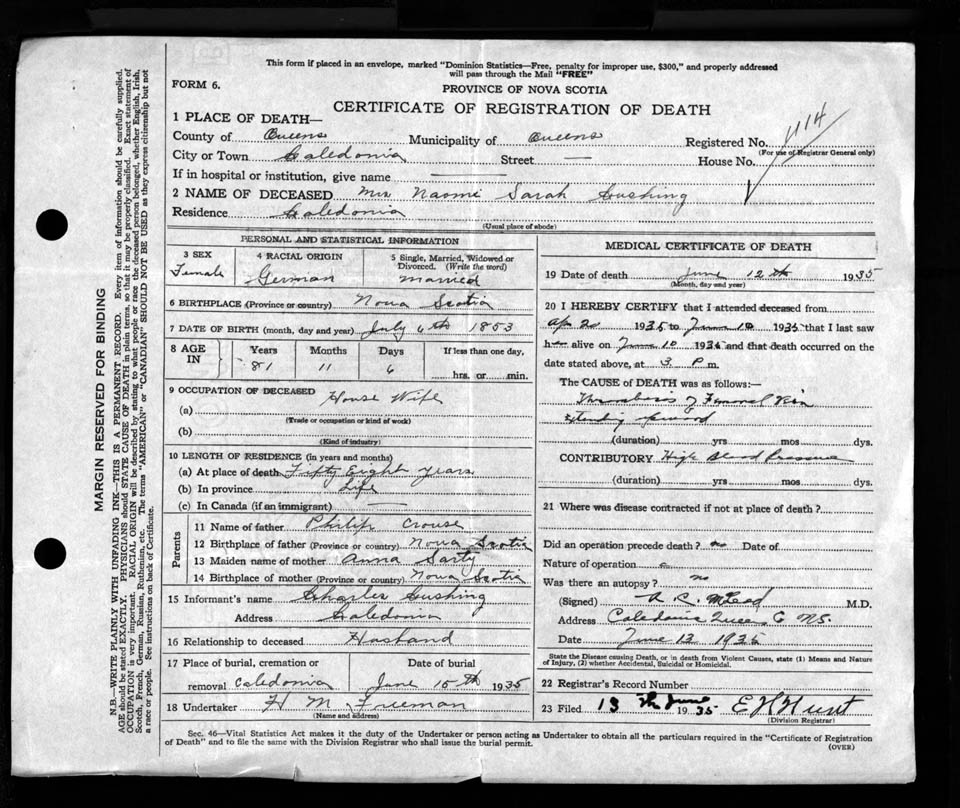 This form if placed in an envelope, marked "Dominion Statistics—Free, penalty for improper use, $300," and properly addressed
will pass through the Mail "FREE"
FORM 6.
PROVINCE OF NOVA SCOTIA
CERTIFICATE OF REGISTRATION OF DEATH
1 PLACE OF DEATH—
County of Queens Municipality of Queens Registered No. 1114
(For use of Registrar General only)
City or Town Caledonia Street — House No.
If in hospital or institution, give name —
2 NAME OF DECEASED Mrs Naomi Sarah Cushing
Residence Caledonia
(Usual place of abode)
PERSONAL AND STATISTICAL INFORMATION
3 SEX Female
4 RACIAL ORIGIN German
5 Single, Married, Widowed or Divorced. (Write the word) Married
6 BIRTHPLACE (Province or country) Nova Scotia
7 DATE OF BIRTH (month, day and year) July 6th 1853
8 AGE IN Years Months Days If less than one day,
81 11 6 hrs. or min.
9 OCCUPATION OF DECEASED House Wife
(a)
(Trade or occupation or kind of work)
(b)
(Kind of industry)
10 LENGTH OF RESIDENCE (in years and months)
(a) At place of death Fifty Eight years
(b) In province Life
(c) In Canada (if an immigrant) —
Parents
11 Name of father Philip Crouse
12 Birthplace of father (Province or country) Nova Scotia
13 Maiden name of mother Anna Sarty
14 Birthplace of mother (Province or country) Nova Scotia
15 Informant's name Charles Cushing
Address Caledonia
16 Relationship to deceased Hasband
17 Place of burial, cremation or Date of burial
removal Caledonia June 15th 1935
18 Undertaker H M Freeman
(Name and address)
MEDICAL CERTIFICATE OF DEATH
19 Date of death June 12th 1935
(Month, day and year)
20 I HEREBY CERTIFY that I attended deceased from
Ap 20 1935 to June 10 1935 that I last saw
h alive on June 10 1935 and that death occurred on
date stated above, at 3 P m.
The CAUSE of DEATH was as follows:—
Thrombosis of Femoral Vein
Extending upward
(duration) yrs mos dys.
CONTRIBUTORY High Blood Pressure
(duration) yrs mos dys.
21 Where was disease contracted if not at place of death?
Did an operation precede death? no Date of
Nature of operation
Was there an autopsy? no
(Signed) A C McLeod M.D.
Address Caledonia Queens Co NS.
Date June 13 1935
State the Disease causing Death, or in death from Violent Causes, state (1) Means and Nature
of Injury, (2) whether Accidental, Suicidal or Homicidal.
22 Registrar's Record Number
23 Filed 13th June 1935 E H Hunt
(Division Registrar)
Sec. 46—Vital Statistics Act makes it the duty of the Undertaker or person acting as Undertaker to obtain all the particulars required in the "Certificate of Registration
of Death" and to file the same with the Division Registrar who shall issue the burial permit.
(OVER)
MARGIN RESERVED FOR BINDING
N.B.—WRITE PLAINLY WITH UNFADING INK—THIS IS A PERMANENT RECORD. Every item of information should be carefully supplied.
AGE should be stated EXACTLY. PHYSICIANS should STATE CAUSE OF DEATH in plain terms, so that it may be properly classified. Exact statement of
OCCUPATION is very important. RACIAL ORIGIN will be described by stating to what people or race the deceased person belonged, whether English, Irish,
Scotch, French, German, Russian, Ruthenian, etc. The terms "AMERICAN" or "CANADIAN" SHOULD NOT BE USED as they express citizenship but not
a race or people. See instructions on back of Certificate.